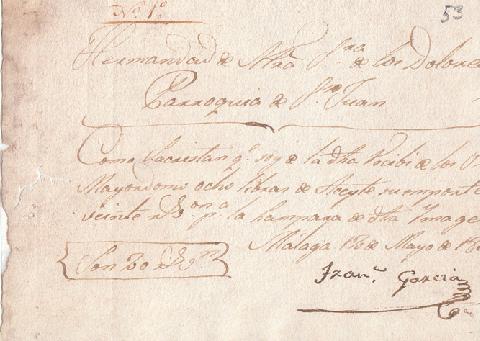 Nº 1º
53
Hermandad de Ntra Sra de los Dolores
Parroquia de Sn Juan
Como Sacristan q. soy de la dha Recibi de los
Mayordomo ocho libras de Aceyte su importe
veinte rs von pa la Lampara de dha Ymagen
Malaga de Mayo de
Son 30 rs
Franco Garcia